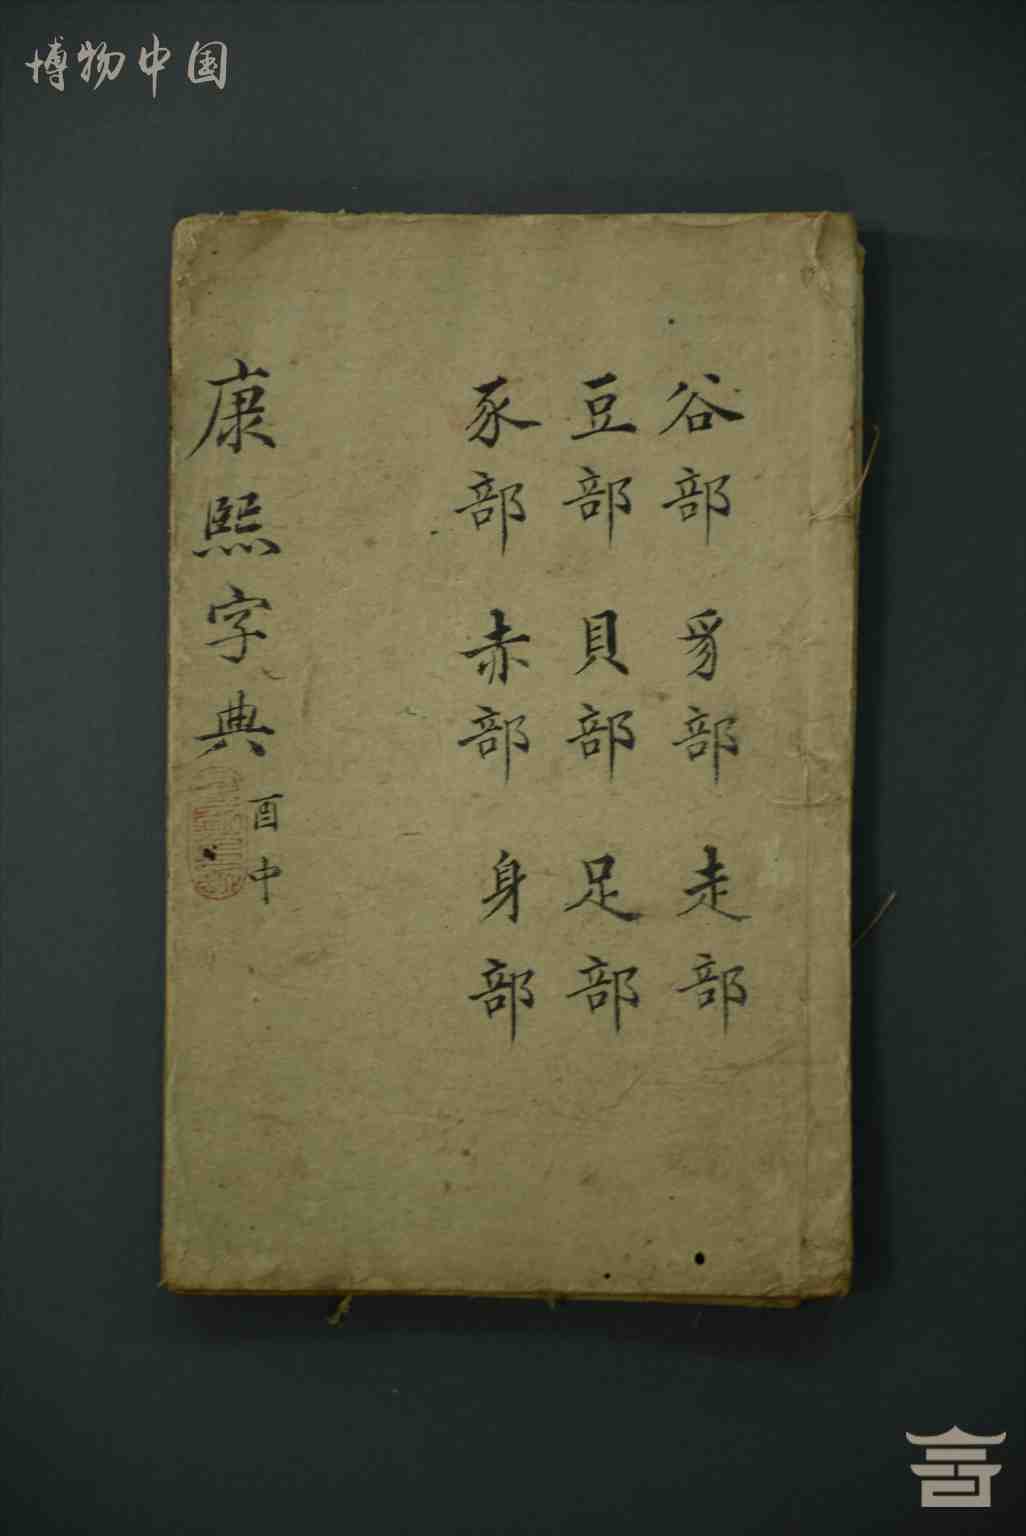 博物中国
谷部 豸部 走部
豆部 貝部 足部
豕部 赤部 身部
康熙字典
酉中